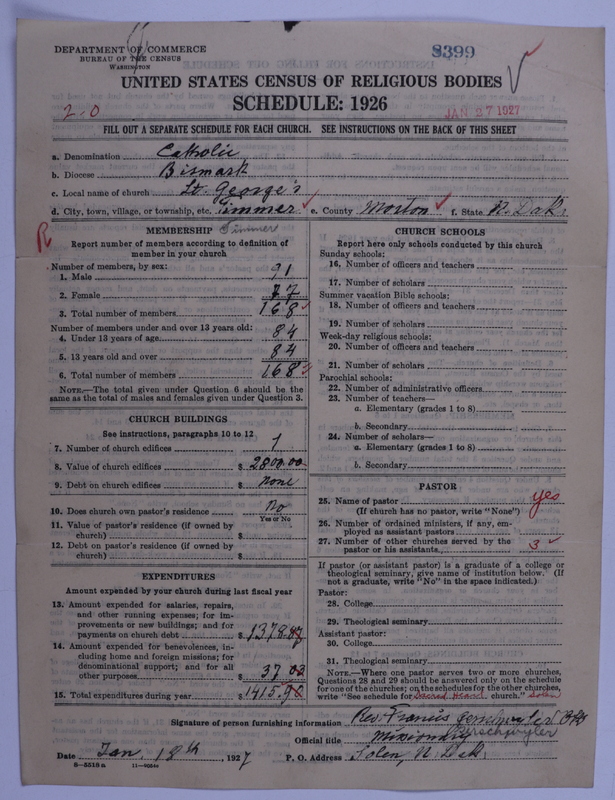 DEPARTMENT OF COMMERCE
BUREAU OF THE CENSUS
WASHINGTON
8399
UNITED STATES CENSUS OF RELIGIOUS BODIES
SCHEDULE: 1926
2-0
JAN 27 1927
FILL OUT A SEPARATE SCHEDULE FOR EACH CHURCH. SEE INSTRUCTIONS ON THE BACK OF THIS SHEET
a. Denomination Catholic
b. Diocese Bismark
c. Local name of church St. George's
d. City, town, village, or township, etc. Timmer e. County Morton f. State N. Dak.
R
MEMBERSHIP
Report number of members according to definition of member in your church
Number of members, by sex:
1. Male 91
2. Female 77
3. Total number of members 168
Number of members under and over 13 years old:
4. Under 13 years of age 84
5. 13 years old and over 84
6. Total number of members 168
NOTE.—The total given under Question 6 should be
same as the total of males and females given under Question 3.
CHURCH BUILDINGS
See instructions, paragraphs 10 to 12
7. Number of church edifices 1
8. Value of church edifices $ 2800.00
9. Debt on church edifices $ none
10. Does church own pastor's residence No
Yes or No
11. Value of pastor's residence (if owned by
church) $
12. Debt on pastor's residence (if owned by
church) $
EXPENDITURES
Amount expended by your church during last fiscal year
13. Amount expended for salaries, repairs,
and other running expenses; for im-
provements or new buildings; and for
payments on church debt $ 1378.
14. Amount expended for benevolences, in-
cluding home and foreign missions; for
denominational support; and for all
other purposes $ 37
15. Total expenditures during year $ 1415.
CHURCH SCHOOLS
Report here only schools conducted by this church
Sunday schools:
16. Number of officers and teachers
17. Number of scholars
Summer vacation Bible schools:
18. Number of officers and teachers
19. Number of scholars
Week-day religious schools:
20. Number of officers and teachers
21. Number of scholars
Parochial schools:
22. Number of administrative officers
23. Number of teachers—
a. Elementary (grades 1 to 8)
b. Secondary
24. Number of scholars—
a. Elementary (grades 1 to 8)
b. Secondary
PASTOR
25. Name of pastor yes
(If church has no pastor, write "None")
26. Number of ordained ministers, if any, em-
ployed as assistant pastors
27. Number of other churches served by the
pastor or his assistants 3
If pastor (or assistant pastor) is a graduate of a college or
theological seminary, give name of institution below. (If
not a graduate, write "No" in the space indicated.)
Pastor:
28. College
29. Theological seminary
Assistant pastor:
30. College
31. Theological seminary
NOTE.—Where one pastor serves two or more churches,
Questions 28 and 29 should be answered only on the schedule
for one of the churches; on the schedules for the other churches,
write "See schedule for Sacred Heart church." Solen
Signature of person furnishing information Rev. Francis Gerschwyler
Official title Missionary Gerschwyler
Date Jan. 18th, 1927 P. O. Address Solen, N. Dak.
8—5518a